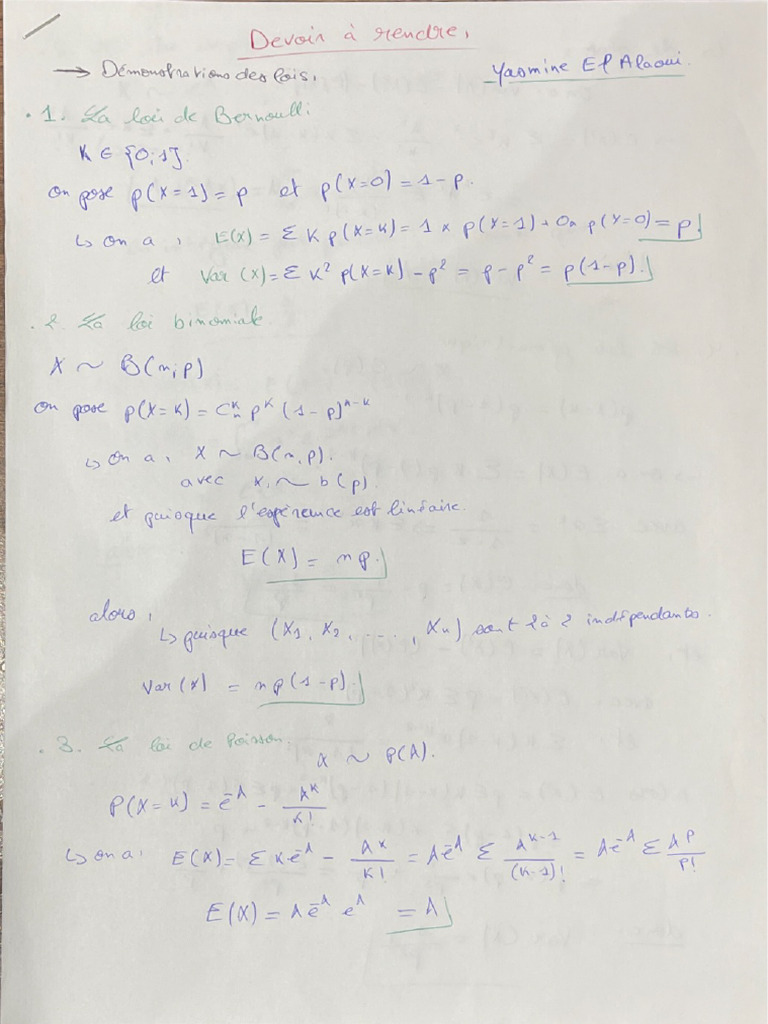 Devoir à rendre,
→ Démonstrations des lois, Yasmine El Alaoui.
. 1. La loi de Bernoulli
K ∈ {0;1}.
on pose p(X=1) = p et p(X=0) = 1-p.
↳ on a, E(X) = Σ K p(X=K) = 1 × p(X=1) + 0 × p(X=0) = p
et Var (X) = Σ K² p(X=K) - p² = p - p² = p(1-p).
. 2. La loi binomiale
X ~ B(n;p)
on pose p(X=K) = Cₙᴷ pᴷ (1-p)ⁿ⁻ᴷ
↳ on a, X ~ B(n,p).
avec X, ~ b(p).
et puisque l'espérence est linéaire.
E(X) = np.
alors,
↳ puisque (X₁, X₂, ...., Xₙ) sont 2 à 2 indépendants.
Var(X) = np(1-p).
. 3. La loi de Poisson.
X ~ P(λ).
P(X=K) = e⁻λ - λᴷ/K!
↳ on a, E(X) = Σ K e⁻λ - λᴷ/K! = λe⁻λ Σ λᴷ⁻¹/(K-1)! = λe⁻λ Σ λᵖ/p!
E(X) = λ e⁻λ eλ = λ